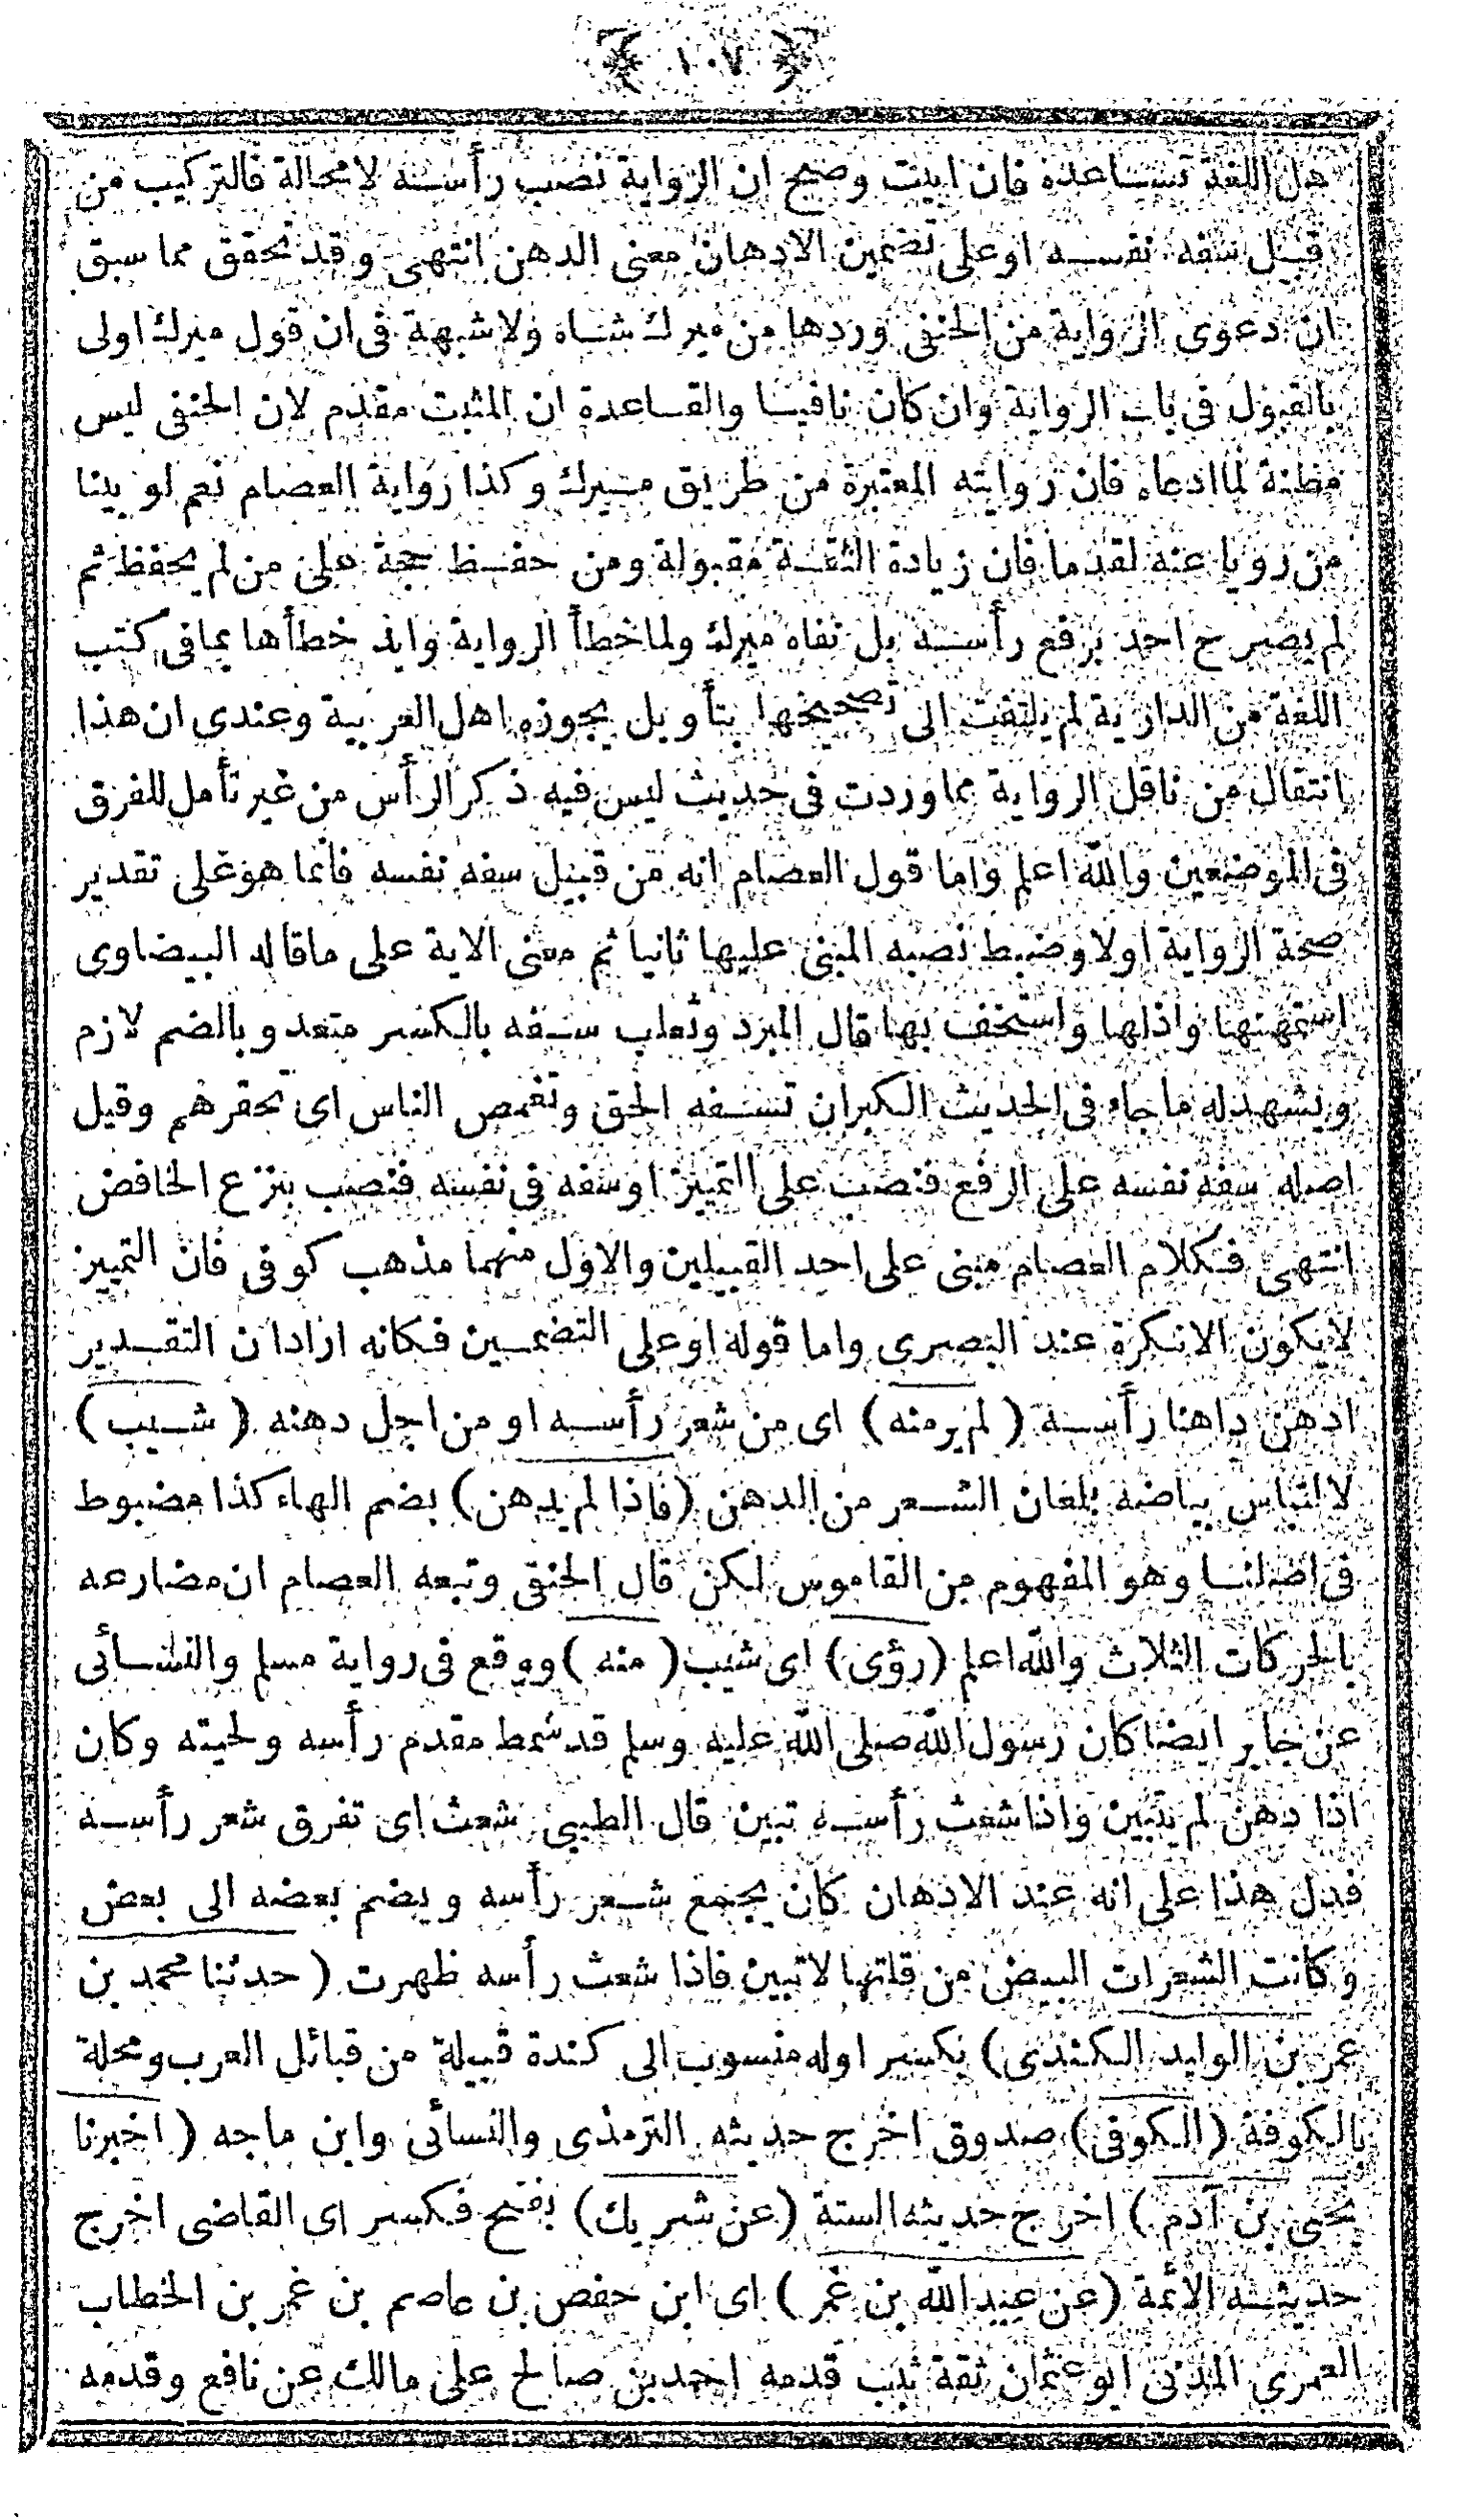 ﴿ ١٠٧ ﴾
هل اللغة تساعده فان ابيت وصح ان الرواية نصب رأسه لا محالة فالتركيب من
قبيل سفه نفسه او على تضمين الادهان معنى الدهن انتهى وقد تحقق مما سبق
ان دعوى الرواية من الحنفى وردها من ميرك شاه ولا شبهة فى ان قول ميرك اولى
بالقبول فى باب الرواية وان كان نافيا والقاعدة ان المثبت مقدم لان الحنفى ليس
مظنة لما ادعاه فان روايته المعتبرة من طريق ميرك وكذا رواية العصام نعم لو بينا
من رويا عنه لقدما فان زيادة الثقة مقبولة ومن حفظ حجة على من لم يحفظ ثم
لم يصرح احد برفع رأسه بل نفاه ميرك ولما خطأ الرواية وايد خطأها بما فى كتب
اللغة من الدارية لم يلتفت الى تصحيحها بتأويل يجوزه اهل العربية وعندى ان هذا
انتقال من ناقل الرواية مما وردت فى حديث ليس فيه ذكر الرأس من غير تأمل للفرق
فى الموضعين والله اعلم واما قول العصام انه من قبيل سفه نفسه فانما هو على تقدير
صحة الرواية اولا وضبط نصبه المبنى عليها ثانيا ثم معنى الاية على ما قاله البيضاوى
استمهنها واذلها واستخف بها قال المبرد وثعلب سفه بالكسر متعد وبالضم لازم
ويشهد له ما جاء فى الحديث الكبر ان تسفه الحق وتغمص الناس اى تحقرهم وقيل
اصله سفه نفسه على الرفع فنصب على التمييز او سفه فى نفسه فنصب بنزع الخافض
انتهى فكلام العصام مبنى على احد القبيلين والاول منهما مذهب كوفى فان التمييز
لا يكون الا نكرة عند البصرى واما قوله او على التضمين فكانه اراد ان التقدير
ادهن داهنا رأسه ( لم ير منه ) اى من شعر رأسه او من اجل دهنه ( شيب )
لالتباس بياضه بلمعان الشعر من الدهن ( فاذا لم يدهن ) بضم الهاء كذا مضبوط
فى اصلنا وهو المفهوم من القاموس لكن قال الحنفى وتبعه العصام ان مضارعه
بالحركات الثلاث والله اعلم ( رؤى ) اى شيب ( منه ) ووقع فى رواية مسلم والنسائى
عن جابر ايضا كان رسول الله صلى الله عليه وسلم قد شمط مقدم رأسه ولحيته وكان
اذا دهن لم يتبين واذا شعث رأسه تبين قال الطيبى شعث اى تفرق شعر رأسه
فدل هذا على انه عند الادهان كان يجمع شعر رأسه ويضم بعضه الى بعض
وكانت الشعرات البيض من قلتها لا تبين فاذا شعث رأسه ظهرت ( حدثنا محمد بن
عمر بن الوليد الكندى ) بكسر اوله منسوب الى كندة قبيلة من قبائل العرب ومحلة
بالكوفة ( الكوفى ) صدوق اخرج حديثه الترمذى والنسائى وابن ماجه ( اخبرنا
يحيى بن آدم ) اخرج حديثه الستة ( عن شريك ) بفتح فكسر اى القاضى اخرج
حديثه الائمة ( عن عبيد الله بن عمر ) اى ابن حفص بن عاصم بن عمر بن الخطاب
العمرى المدنى ابو عثمان ثقة ثبت قدمه احمد بن صالح على مالك عن نافع وقدمه